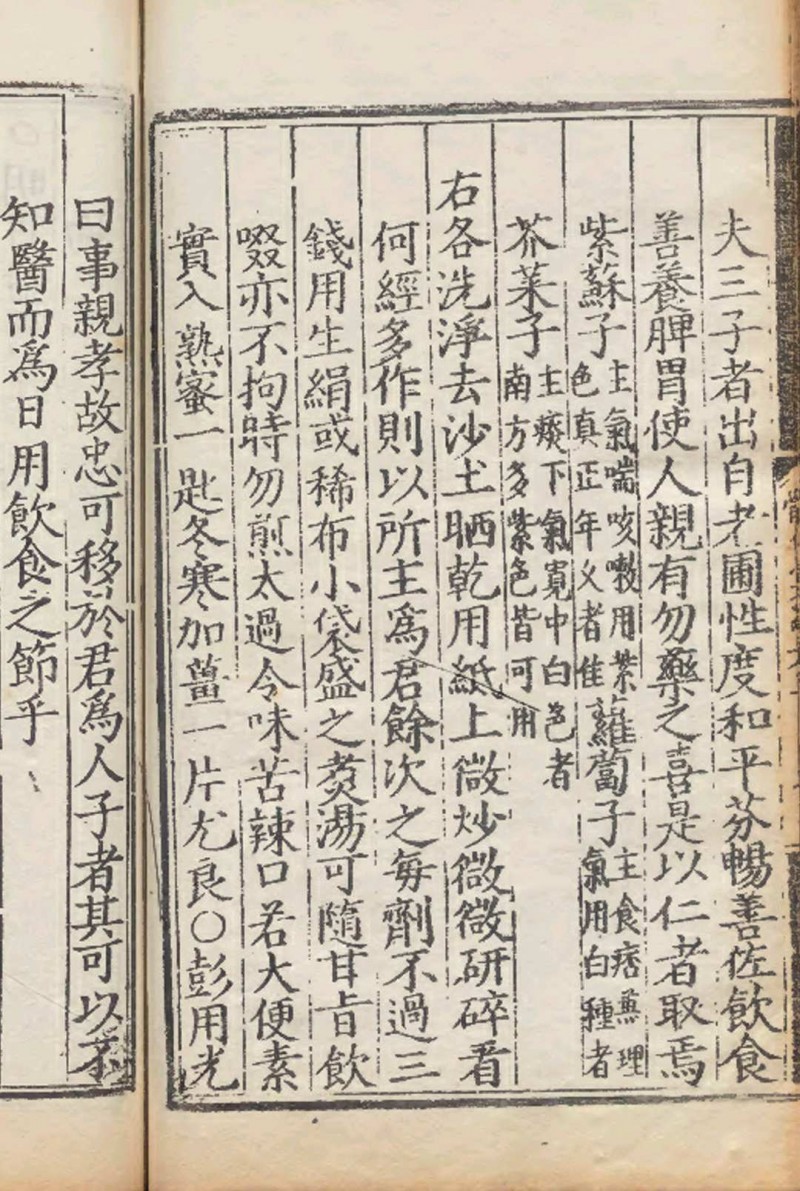 夫三子者出自老圃性度和平芬暢善佐飲食
善養脾胃使人親有勿藥之喜是以仁者取焉
紫蘇子主氣喘咳嗽用紫色真正年久者佳蘿蔔子主食痞兼理氣用白種者
芥菜子主痰下氣寬中白色者南方多紫色皆可用
右各洗淨去沙土晒乾用紙上微炒微微研碎看
何經多作則以所主爲君餘次之每劑不過三
錢用生絹或稀布小袋盛之煑湯可隨甘旨飲
啜亦不拘時勿煎太過令味苦辣口若大便素
實入熟蜜一匙冬寒加薑一片尤良○彭用光
曰事親孝故忠可移於君爲人子者其可以不
知醫而爲日用飲食之節乎